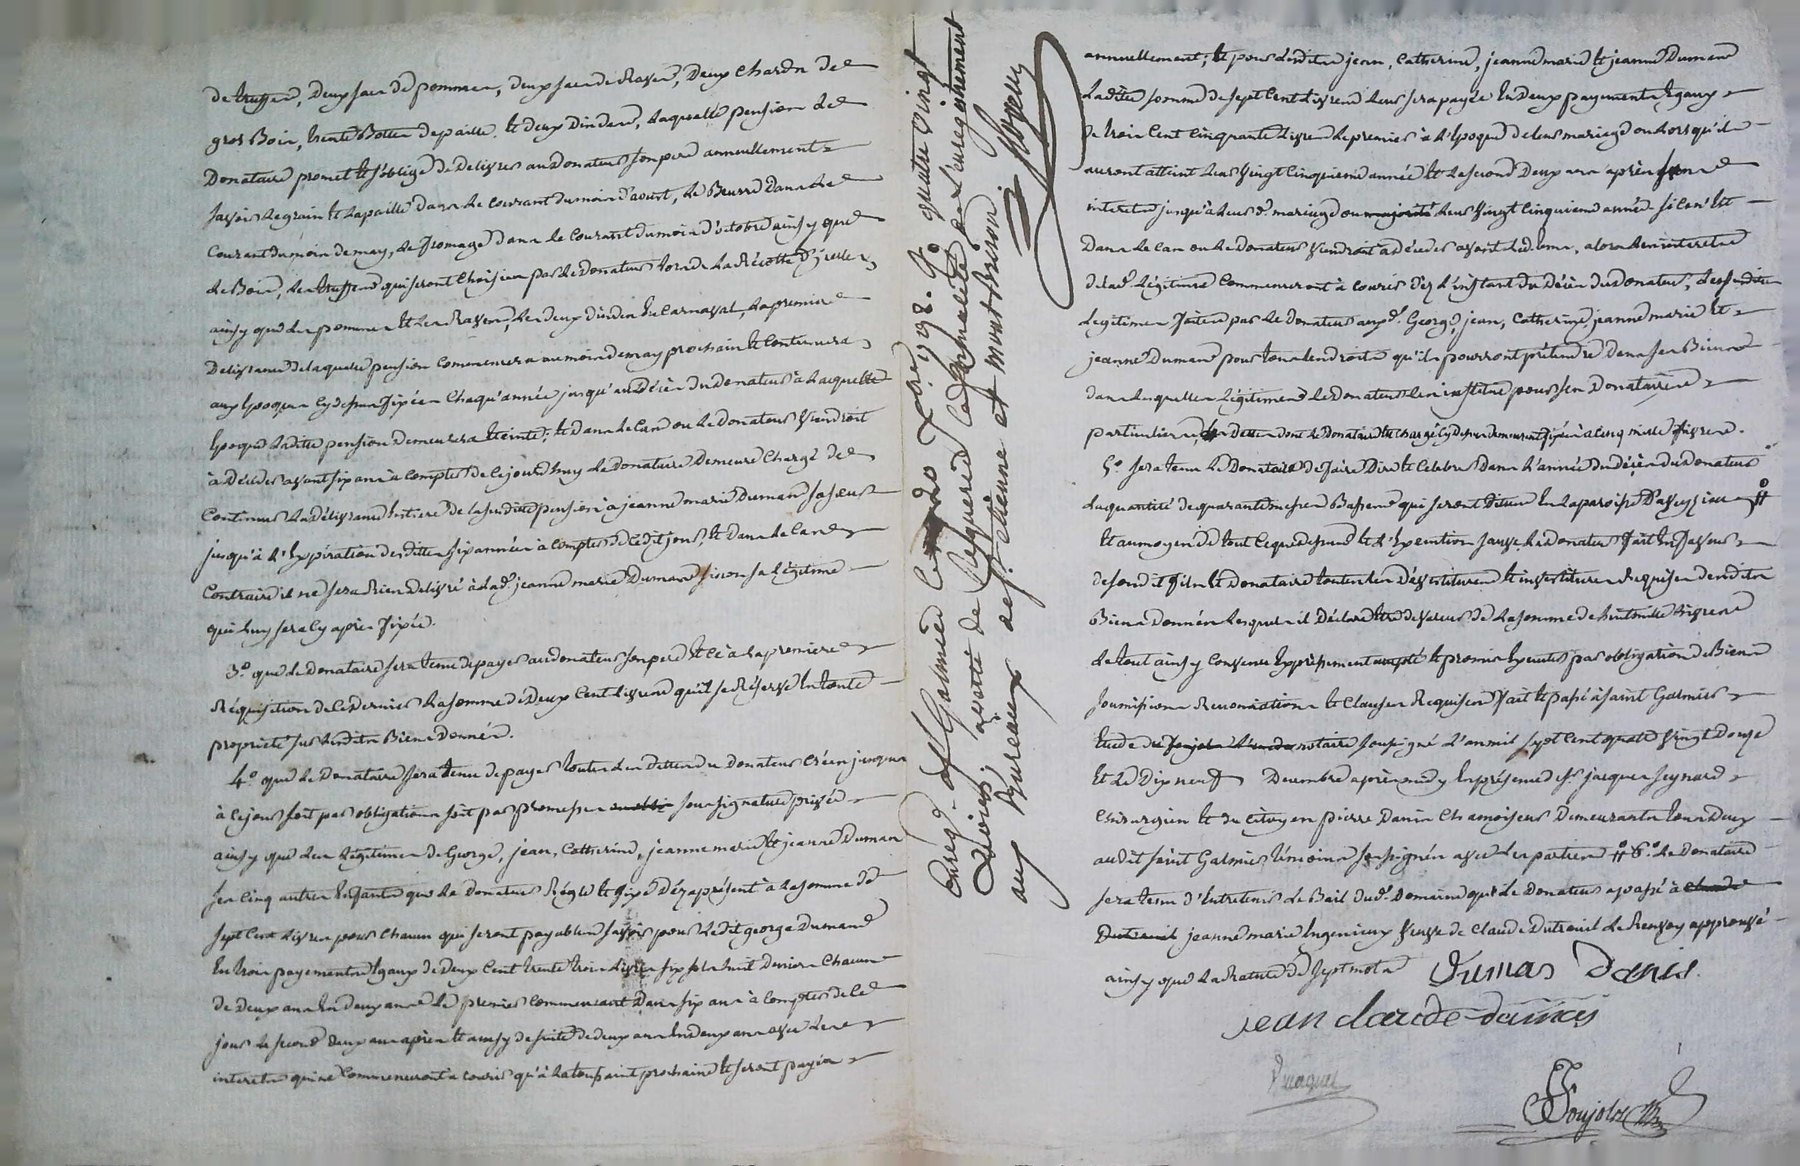 de truffes, deux sacs de pommes, deux sacs de Raves, deux chards de
gros Bois, trente Bottes de paille, et deux dindes, Laquelle pension le
Donataire promet et s'oblige de delivrer au Donateur son pere annuellement
savoir Le grain et La paille dans Le courant du mois d'aoust, Le Beurre dans Le
courant du mois de may, Le fromage dans Le courant du mois d'octobre ainsy que
Le Bois, Les truffes qui seront choisies par Le Donateur Lors de La Récolte
ainsy que Les pommes et Les Raves, Les deux dindes En Carnaval, La premiere
Delivrance de laquelle pension commencera au mois de may prochain et continuera
aux Epoques cy dessus fixées chaqu'année jusqu'au Décès du Donateur à Laquelle
Epoque Laditte pension demeurera Eteinte; et dans Le cas ou Le Donateur viendroit
à Décéder avant six ans à compter de ce jourd'huy Le Donataire Demeure chargé de
continuer La délivrance Entiere de la susditte pension à jeanne marie Dumas sa sœur
jusqu'à L'Expiration desdittes six années à compter de ce dit jour, et dans Le cas
contraire il ne sera Rien delivré à Lad. jeanne marie Dumas sinon sa Légitime
qui Luy sera cy après fixée.
3.° que Le donataire sera tenu de payer au donateur son pere et ce à La premiere
Réquisition de ce Dernier La somme de Deux Cent Livres qu'il se Réserve En toute
propriété sur Lesdits Biens Donnés.
4.° que Le Donataire sera tenu de payer toutes Les Dettes du Donateur créées jusques
à ce jour soit par obligations soit par promesses sous signature privée
ainsy que Les Légitimes de George, jean, Catherine, jeanne marie et jeanne Dumas
ses cinq autres Enfants que Le Donateur Règle et fixe Dès à présent à La somme de
sept Cent Livres pour chacun qui seront payables savoir pour Ledit george Dumas
En trois payements Egaux de Deux Cent trente trois Livres six sols huit deniers chacun
de Deux ans En Deux ans Le premier commencant dans six ans à compter de ce
jour Le second deux ans après et ainsy de suite de deux ans En deux ans avec Les
interets qui ne commenceront à courir qu'à La toussaint prochaine et seront payés
Enreg. à St. Galmier Le 20 Xbre 1792. f.°
quatre vingt
aux Bureaux de St. Etienne et Montbrison
annuellement; et pour Lesdits jean, Catherine, jeanne marie et jeanne Dumas
Laditte somme de sept Cent Livres Leur sera payée En Deux payements Egaux
de trois Cent Cinquante Livres Le premier à L'Epoque de Leur mariage ou Lorsqu'ils
auront atteint Leur vingt Cinquieme année et Le second Deux ans après sans
interets jusqu'à Leur d. mariage ou Leur vingt Cinquieme année si ce n'Est
Dans Le cas ou Le Donateur viendroit à décéder avant Led. tems, alors Les interets
de Lad. Légitime commenceront à courir dès L'instant du Décès du Donateur,
Legitimes faites par Le Donateur auxd. George, jean, Catherine, jeanne marie et
jeanne Dumas pour tous Les droits qu'ils pourront prétendre Dans ses Biens
dans Lesquelles Légitimes Le Donateur Les institue pour ses Donataires
particuliers Les Dettes dont Le Donataire Est chargé cy dessus demeurent fixées à Cinq mille Livres.
5.° sera tenu Le Donataire de faire Dire et Celebrer Dans L'année du décès du Donateur
La quantité de quarante messes Basses qui seront Dittes En La paroisse
Et au moyen de tout ce que dessus et L'Execution sauve Le Donateur s'est
au dit Donataire toutes Les devestitures et investitures Requises desdits
Biens Donnés Lesquels il Déclare Etre de valeur de La somme de
Le tout ainsy Convenu Expressement accepté et promis Executer par obligation de Biens
soumissions Renonciations et Clauses Requises fait et passé à saint Galmier
Etude notaire soussigné L'an mil sept Cent quatre vingt Douze
Et Le Dix neuf Decembre après midy En présence de sr. jacques
Chirurgien et du citoyen pierre Chamoiseur Demeurants tous Deux
audit saint Galmier témoins soussignés avec Les parties 6.° Le Donataire
sera tenu d'Entretenir Le Bail dud. Domaine que Le Donateur a passé à
jeanne marie Ingenieux veuve de Claude Dutreuil Le Renvoy approuvé
ainsy que La Rature de sept mots Dumas Danis.
jean claude dumas